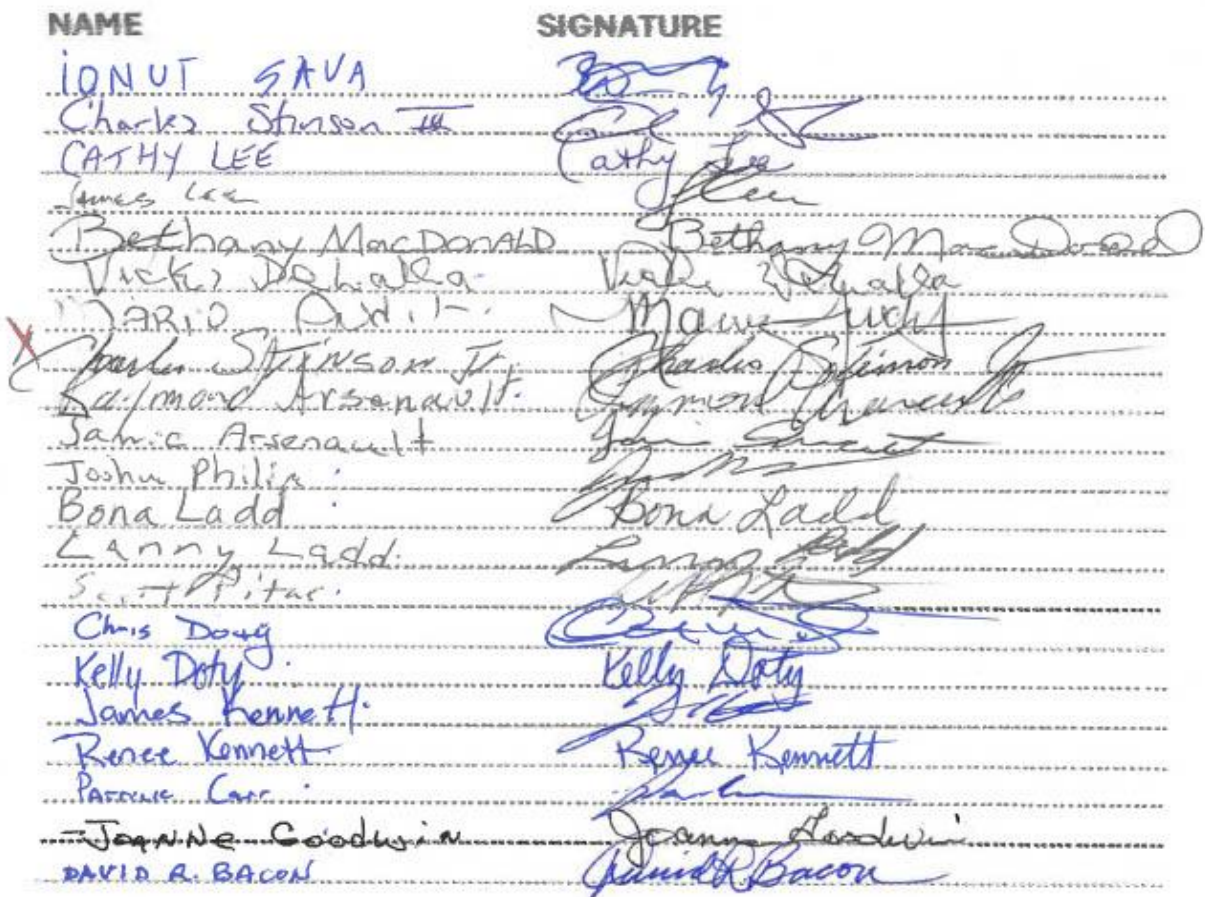 NAME SIGNATURE
IONUT SAVA
Charles Stinson III
CATHY LEE Cathy Lee
James Lee JLee
Bethany MacDONALD Bethany MacDonald
Vicki
MARIO Audit Mario Audit
Charles STINSON Jr. Charles Stinson Jr
Raymond Arsenault. Raymond Arsenault
Jamie Arsenault
Joshua Philip
Bona Ladd Bona Ladd
Lanny Ladd. Lanny Ladd
Scott Pitar.
Chris Doty
Kelly Doty. Kelly Doty
James Kennett.
Renee Kennett Renee Kennett
PATRICK CARR
JOANNE Goodwin Joanne Goodwin
DAVID R. BACON David R. Bacon